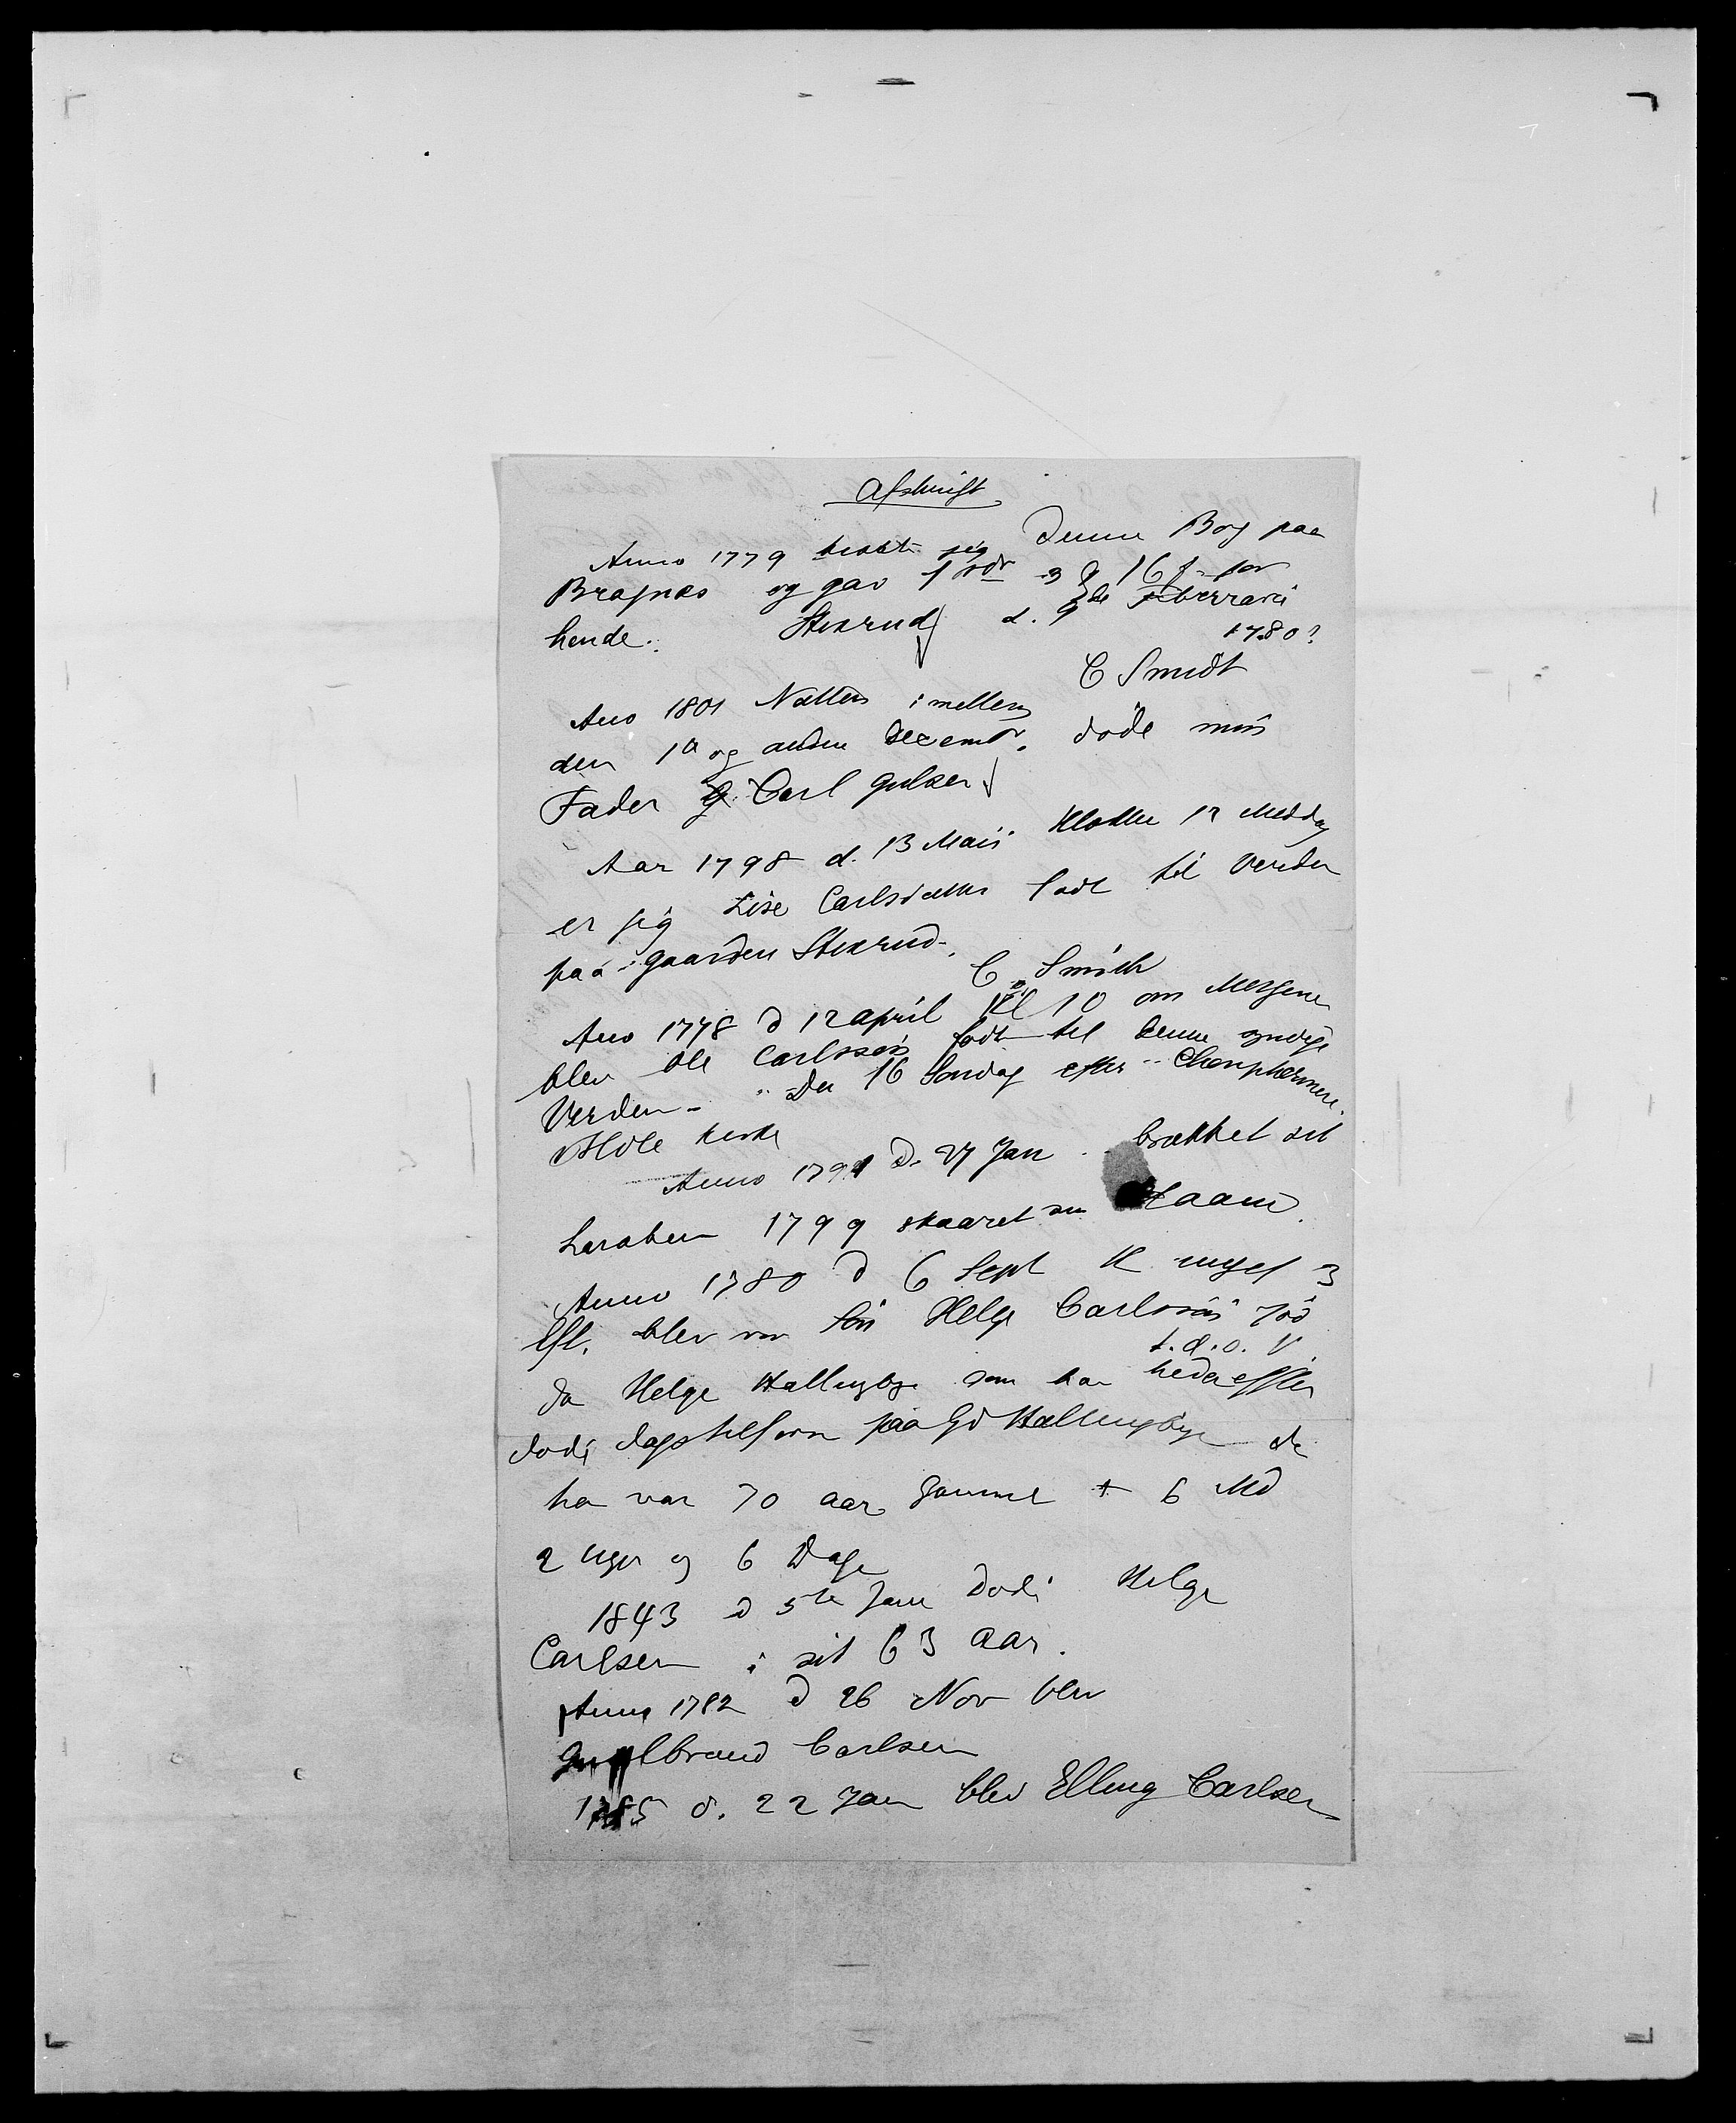 Afskrift
Anno 1779 kosste sig Denne Bog paa
Bragnes og gav 1 rdr 3 16 s for
hende. Stexrud d. 9de Febrrari
1780?
C Smidt
Ano 1801 Natten imellem
den 1ta og anden Decembr. döde min
Fader G. Carl Gulsen
Aar 1798 d. 13 Maii Klokke 12 Middag
er sig Lise Carlsdatter født til Verden
paa gaarden Stexrud.
C Smith
Ano 1778 d 12 april Kl 10 om Morgene
blev Ole Carlssøn født til denne syndige
Verden - Den 16 Søndag efter
Hole kirke
Anno 1791 d. 27 Jan brækket sit
Laraben 1799 skaaret sin Haand
Anno 1780 d 6 Sept Kl 3
Eft. blev vor Søn Helge Carlssøn fød
t. d. o. V.
da Helge Hallingby som har
døde paa Gd Hallingby da
ha var 70 aar gammel + 6 Md
2 Uger og 6 Dage
1843 d 5te Jan Døde Helge
Carlsen i sit 63 Aar.
Anno 1782 d 26 Nov blev
Gulbrand Carlsen
1785 d. 22 Jan blev Elling Carlsen